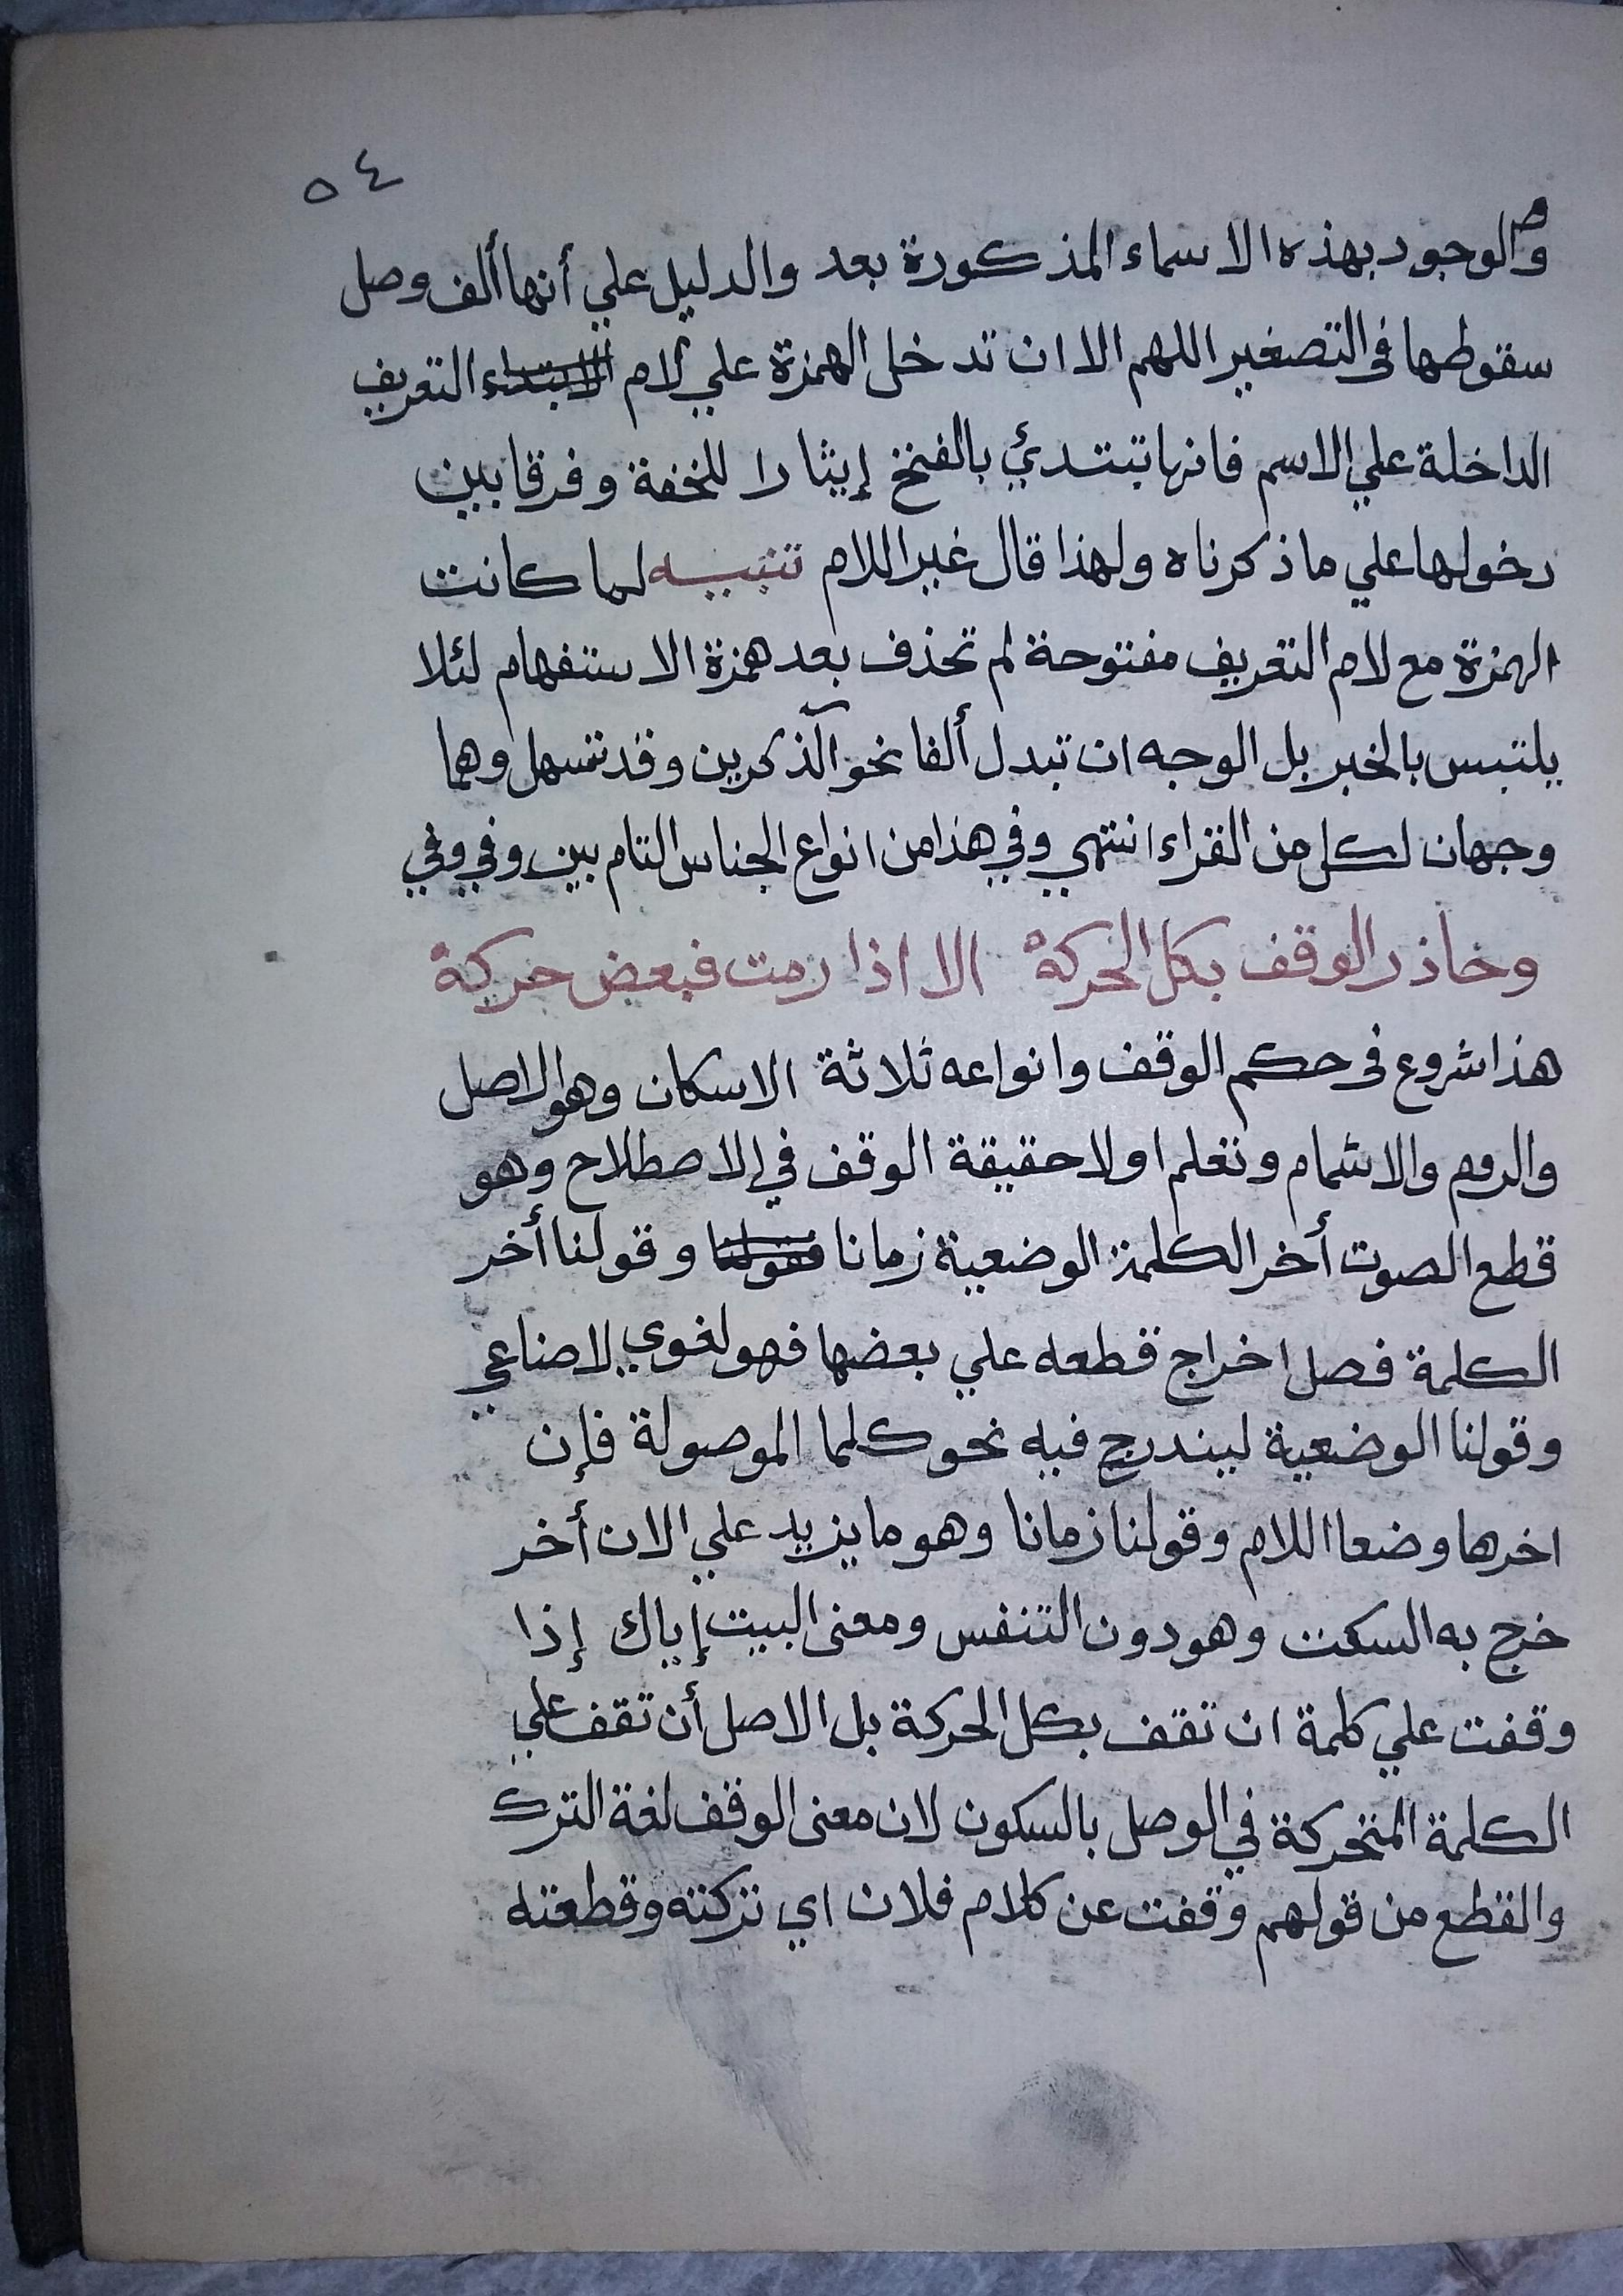 ٥٤
والوجود بهذه الاسماء المذكورة بعد والدليل علي أنها ألف وصل
سقوطها فى التصغير اللهم الا ان تدخل الهمزة علي لام الابتداء التعريف
الداخلة علي الاسم فانها تبتدئ بالفتح إيثارا للخفة وفرقا بين
دخولها علي ما ذكرناه ولهذا قال غير اللام تنبيه لما كانت
الهمزة مع لام التعريف مفتوحة لم تحذف بعد همزة الاستفهام لئلا
يلتبس بالخبر بل الوجه ان تبدل ألفا نحو آلذكرين وقد تسهل وهما
وجهان لكل من القراء انتهي وفي هذا من انواع الجناس التام بين وفي وفي
وحاذر الوقف بكل الحركة الا اذا رمت فبعض حركة
هذا شروع فى حكم الوقف وانواعه ثلاثة الاسكان وهو الاصل
والروم والاشمام ونعلم اولا حقيقة الوقف في الاصطلاح وهو
قطع الصوت أخر الكلمة الوضعية زمانا فقولنا وقولنا أخر
الكلمة فصل اخراج قطعه علي بعضها فهو لغوي لا صناعي
وقولنا الوضعية ليندرج فيه نحو كلما الموصولة فإن
اخرها وضعا اللام وقولنا زمانا وهو ما يزيد علي الان أخر
خرج به السكت وهو دون التنفس ومعنى البيت إياك إذا
وقفت علي كلمة ان تقف بكل الحركة بل الاصل أن تقف علي
الكلمة المتحركة في الوصل بالسكون لان معنى الوقف لغة الترك
والقطع من قولهم وقفت عن كلام فلان اي تركته وقطعته